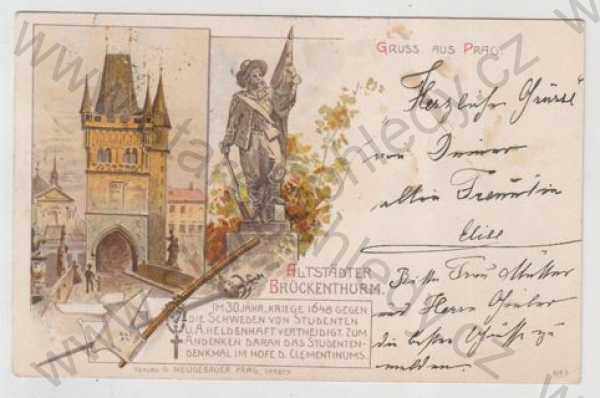 GRUSS AUS PRAG.
Herzliche Grüsse
von Deiner
alten Freundin
Elise
Bitte Frau Mutter
und Herrn
die besten Grüsse zu
melden.
ALTSTÄDTER
BRÜCKENTHURM.
IM 30 JÄHR. KRIEGE 1648 GEGEN
DIE SCHWEDEN VON STUDENTEN
U. A. HELDENHAFT VERTHEIDIGT. ZUM
ANDENKEN DARAN DAS STUDENTEN-
DENKMAL IM HOFE D. CLEMENTINUMS.
VERLAG G. NEUGEBAUER PRAG